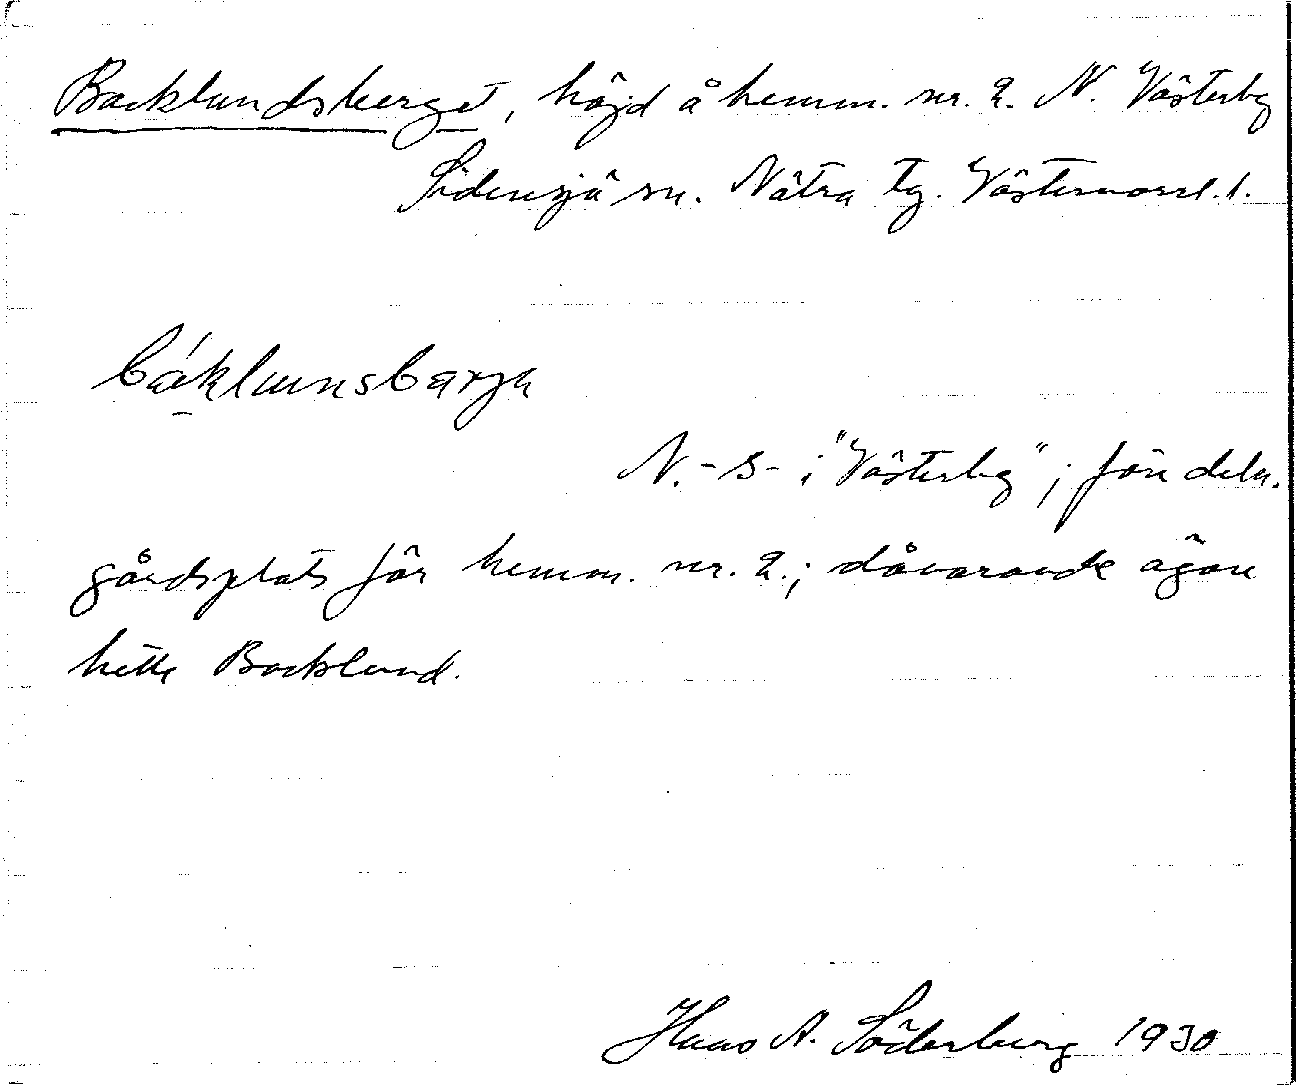 Backlundsberget, höjd å hemm. nr. 2. N. Västerby
Sidensjö sn. Nätra tg. Västernorrl. l.
báklunsbærjə
N. - S - i "Västerby"; före deln.
gårdsplats för hemm. nr. 2.; dåvarande ägare
hette Backlund.
Hans A. Söderberg 1930